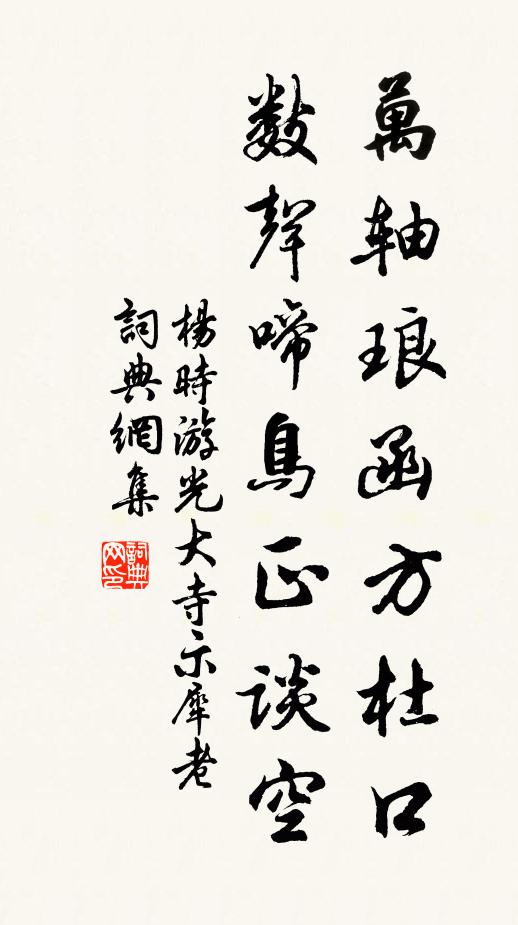 萬軸琅函方杜口
數聲啼鳥正談空
楊時游光大寺示犀老
詞典網集
詞典网印